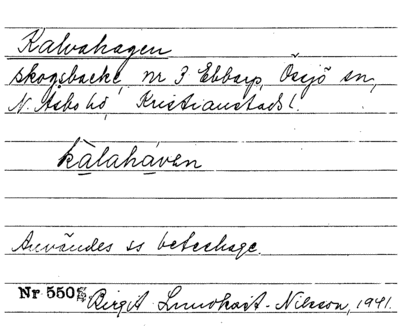 Kalvahagen
skogsbacke, nr 3 Ebbarp, Össjö sn,
N. Åsbo hd, Kristianstads l.
kàlaháven
Användes ss beteshage.
Nr 550 Birgit Nilsson, 1941.